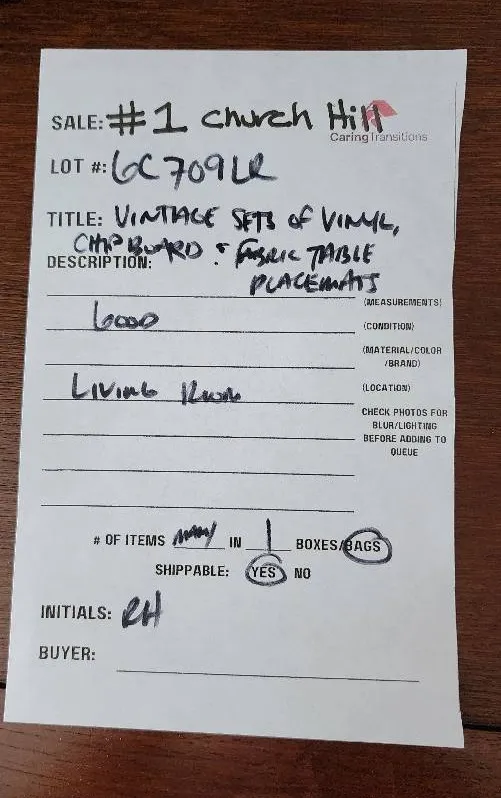 SALE: #1 Church Hill
CaringTransitions
LOT #: GC709LR
TITLE: VINTAGE SETS of VINYL,
CHIPBOARD & FABRIC TABLE
DESCRIPTION:
PLACEMATS
(MEASUREMENTS)
GOOD (CONDITION)
(MATERIAL/COLOR
/BRAND)
LIVING ROOM (LOCATION)
CHECK PHOTOS FOR
BLUR/LIGHTING
BEFORE ADDING TO
QUEUE
# OF ITEMS MANY IN 1 BOXES/BAGS
SHIPPABLE: YES NO
INITIALS: RH
BUYER: